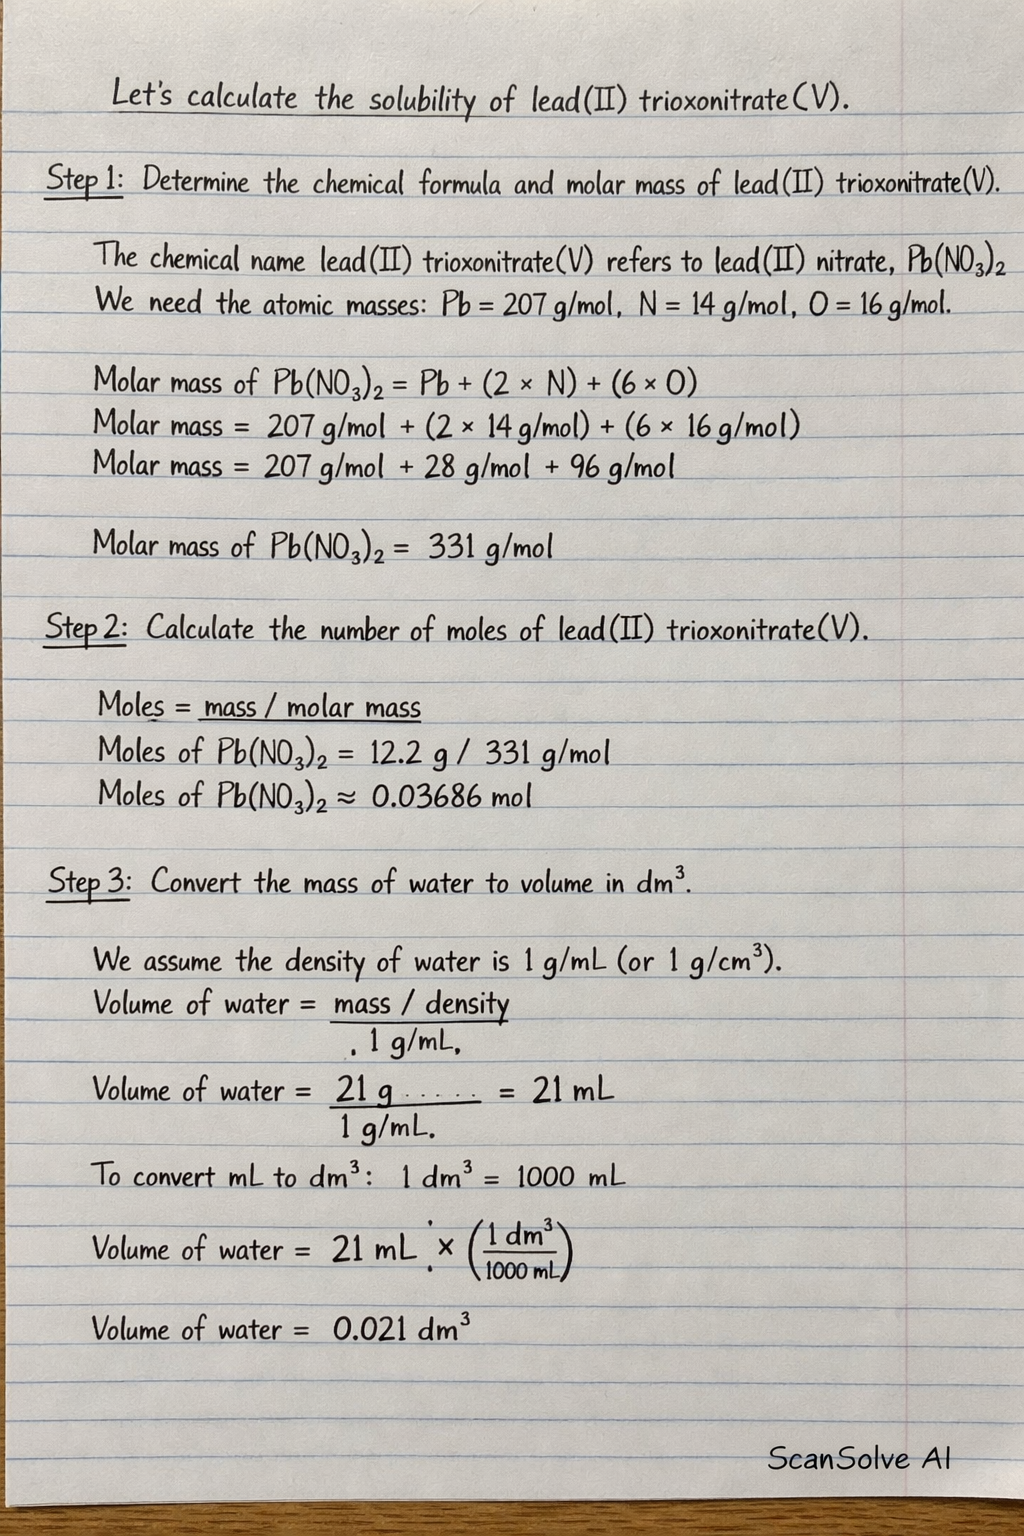 Let's calculate the solubility of lead(II) trioxonitrate(V).
Step 1: Determine the chemical formula and molar mass of lead(II) trioxonitrate(V).
The chemical name lead(II) trioxonitrate(V) refers to lead(II) nitrate, Pb(NO₃)₂
We need the atomic masses: Pb = 207 g/mol, N = 14 g/mol, O = 16 g/mol.
Molar mass of Pb(NO₃)₂ = Pb + (2 × N) + (6 × O)
Molar mass = 207 g/mol + (2 × 14 g/mol) + (6 × 16 g/mol)
Molar mass = 207 g/mol + 28 g/mol + 96 g/mol
Molar mass of Pb(NO₃)₂ = 331 g/mol
Step 2: Calculate the number of moles of lead(II) trioxonitrate(V).
Moles = mass / molar mass
Moles of Pb(NO₃)₂ = 12.2 g / 331 g/mol
Moles of Pb(NO₃)₂ ≈ 0.03686 mol
Step 3: Convert the mass of water to volume in dm³.
We assume the density of water is 1 g/mL (or 1 g/cm³).
Volume of water = mass / density
. 1 g/mL,
Volume of water = 21 g ..... = 21 mL
1 g/mL.
To convert mL to dm³: 1 dm³ = 1000 mL
Volume of water = 21 mL × (1 dm³
1000 mL)
Volume of water = 0.021 dm³
ScanSolve AI